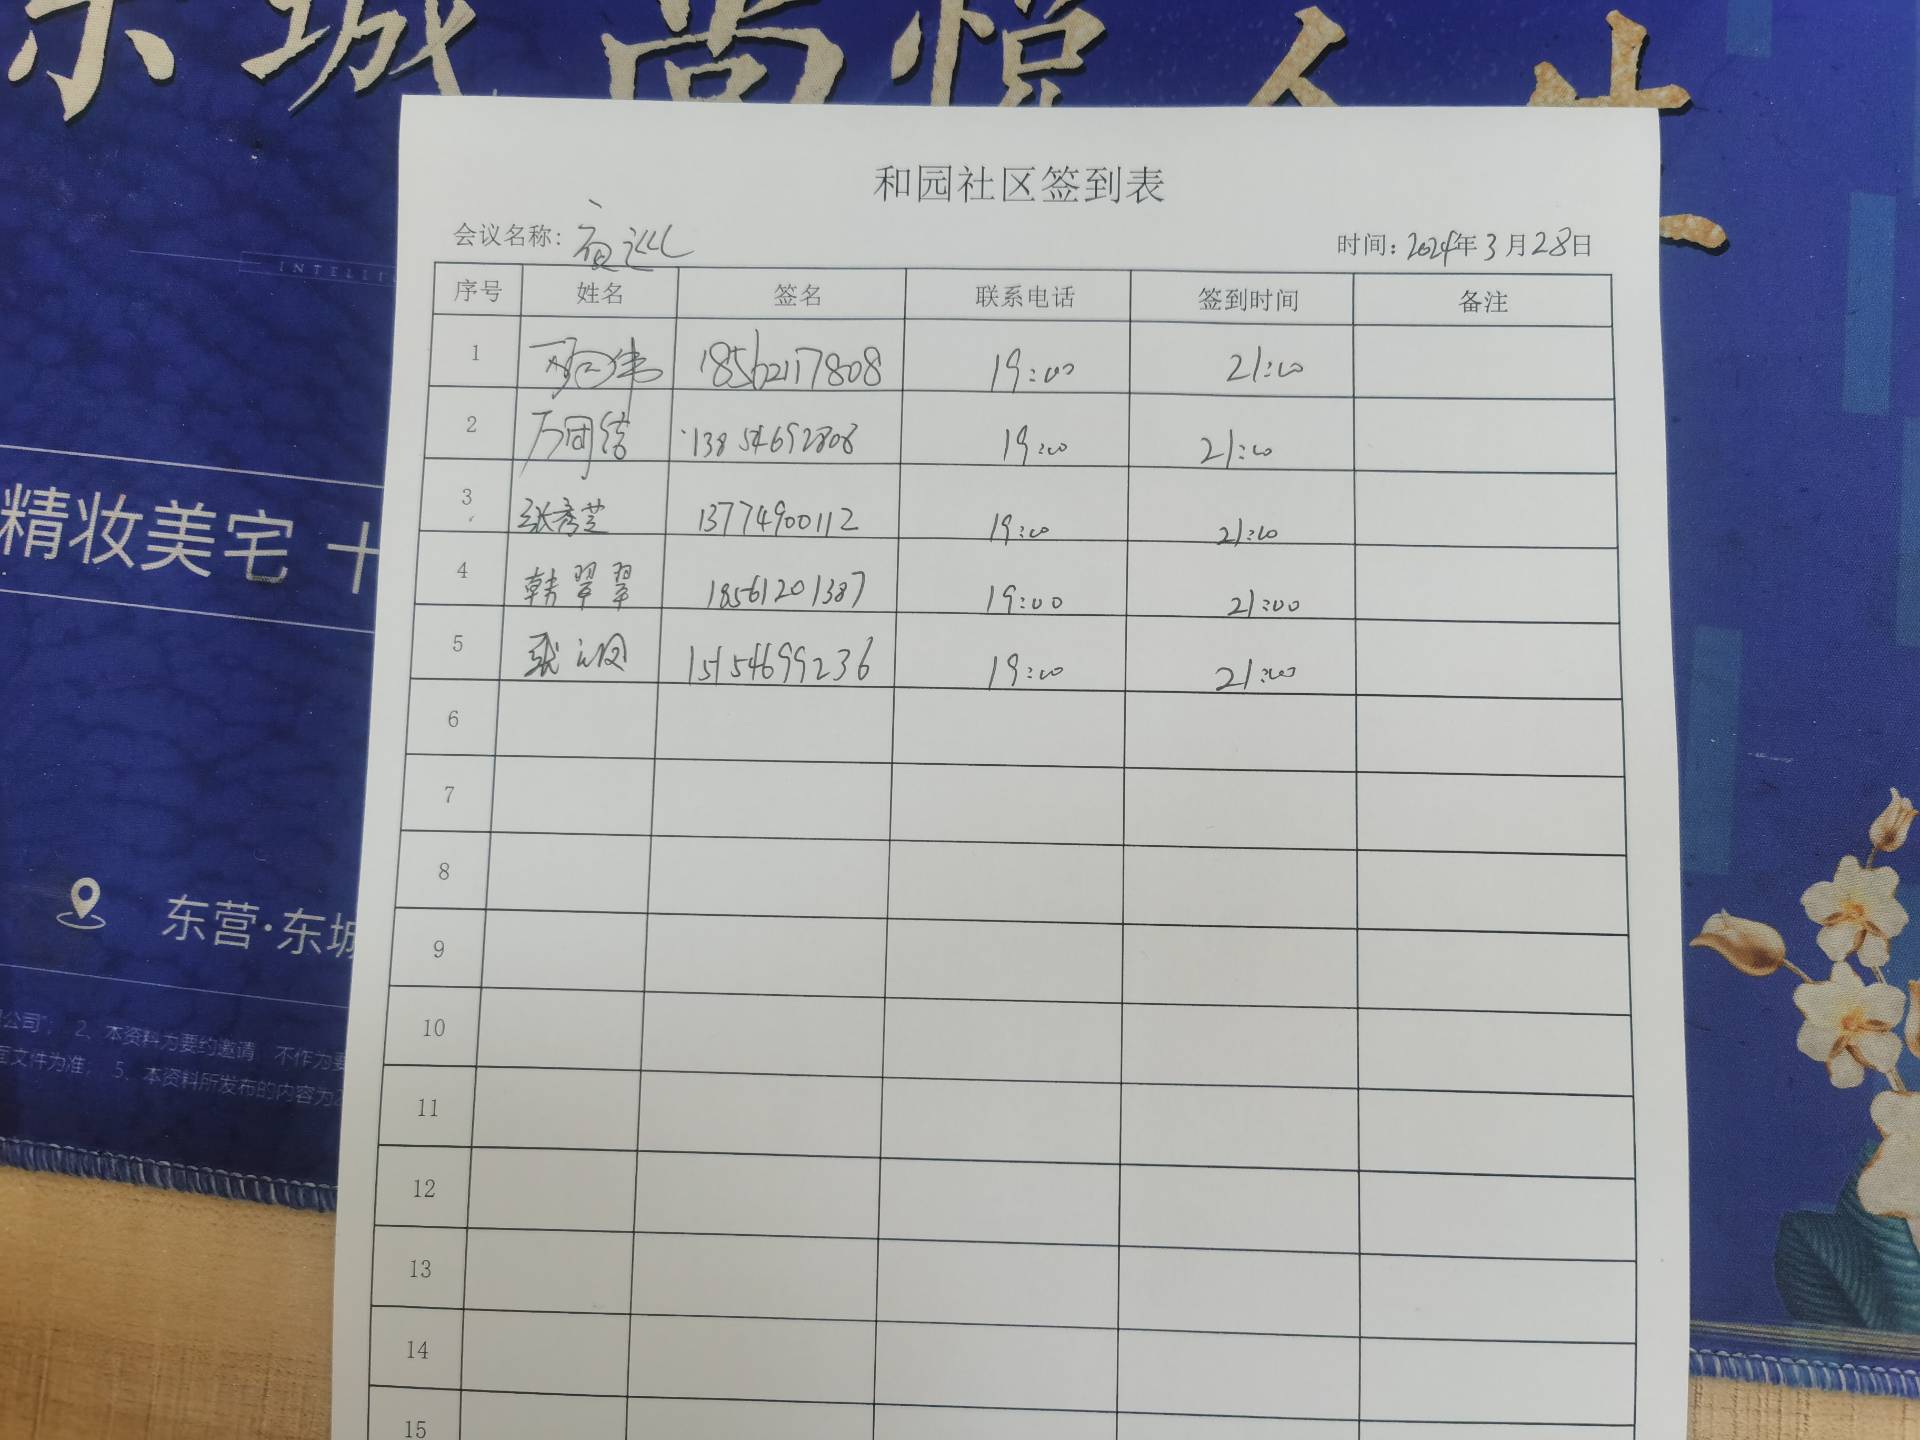 东城尚悦
INTELLI
精妆美宅 十
东营·东城
公司"; 2、本资料为要约邀请,不作为要
文件为准; 5、本资料所发布的内容为2
和园社区签到表
会议名称: 夜巡 时间: 2024年3月28日
序号 姓名 签名 联系电话 签到时间 备注
1 18562117808 19:00 21:00
2 13854692808 19:00 21:00
3 张秀芝 13774900112 19:00 21:00
4 韩翠翠 18561201387 19:00 21:00
5 15154699236 19:00 21:00
6
7
8
9
10
11
12
13
14
15